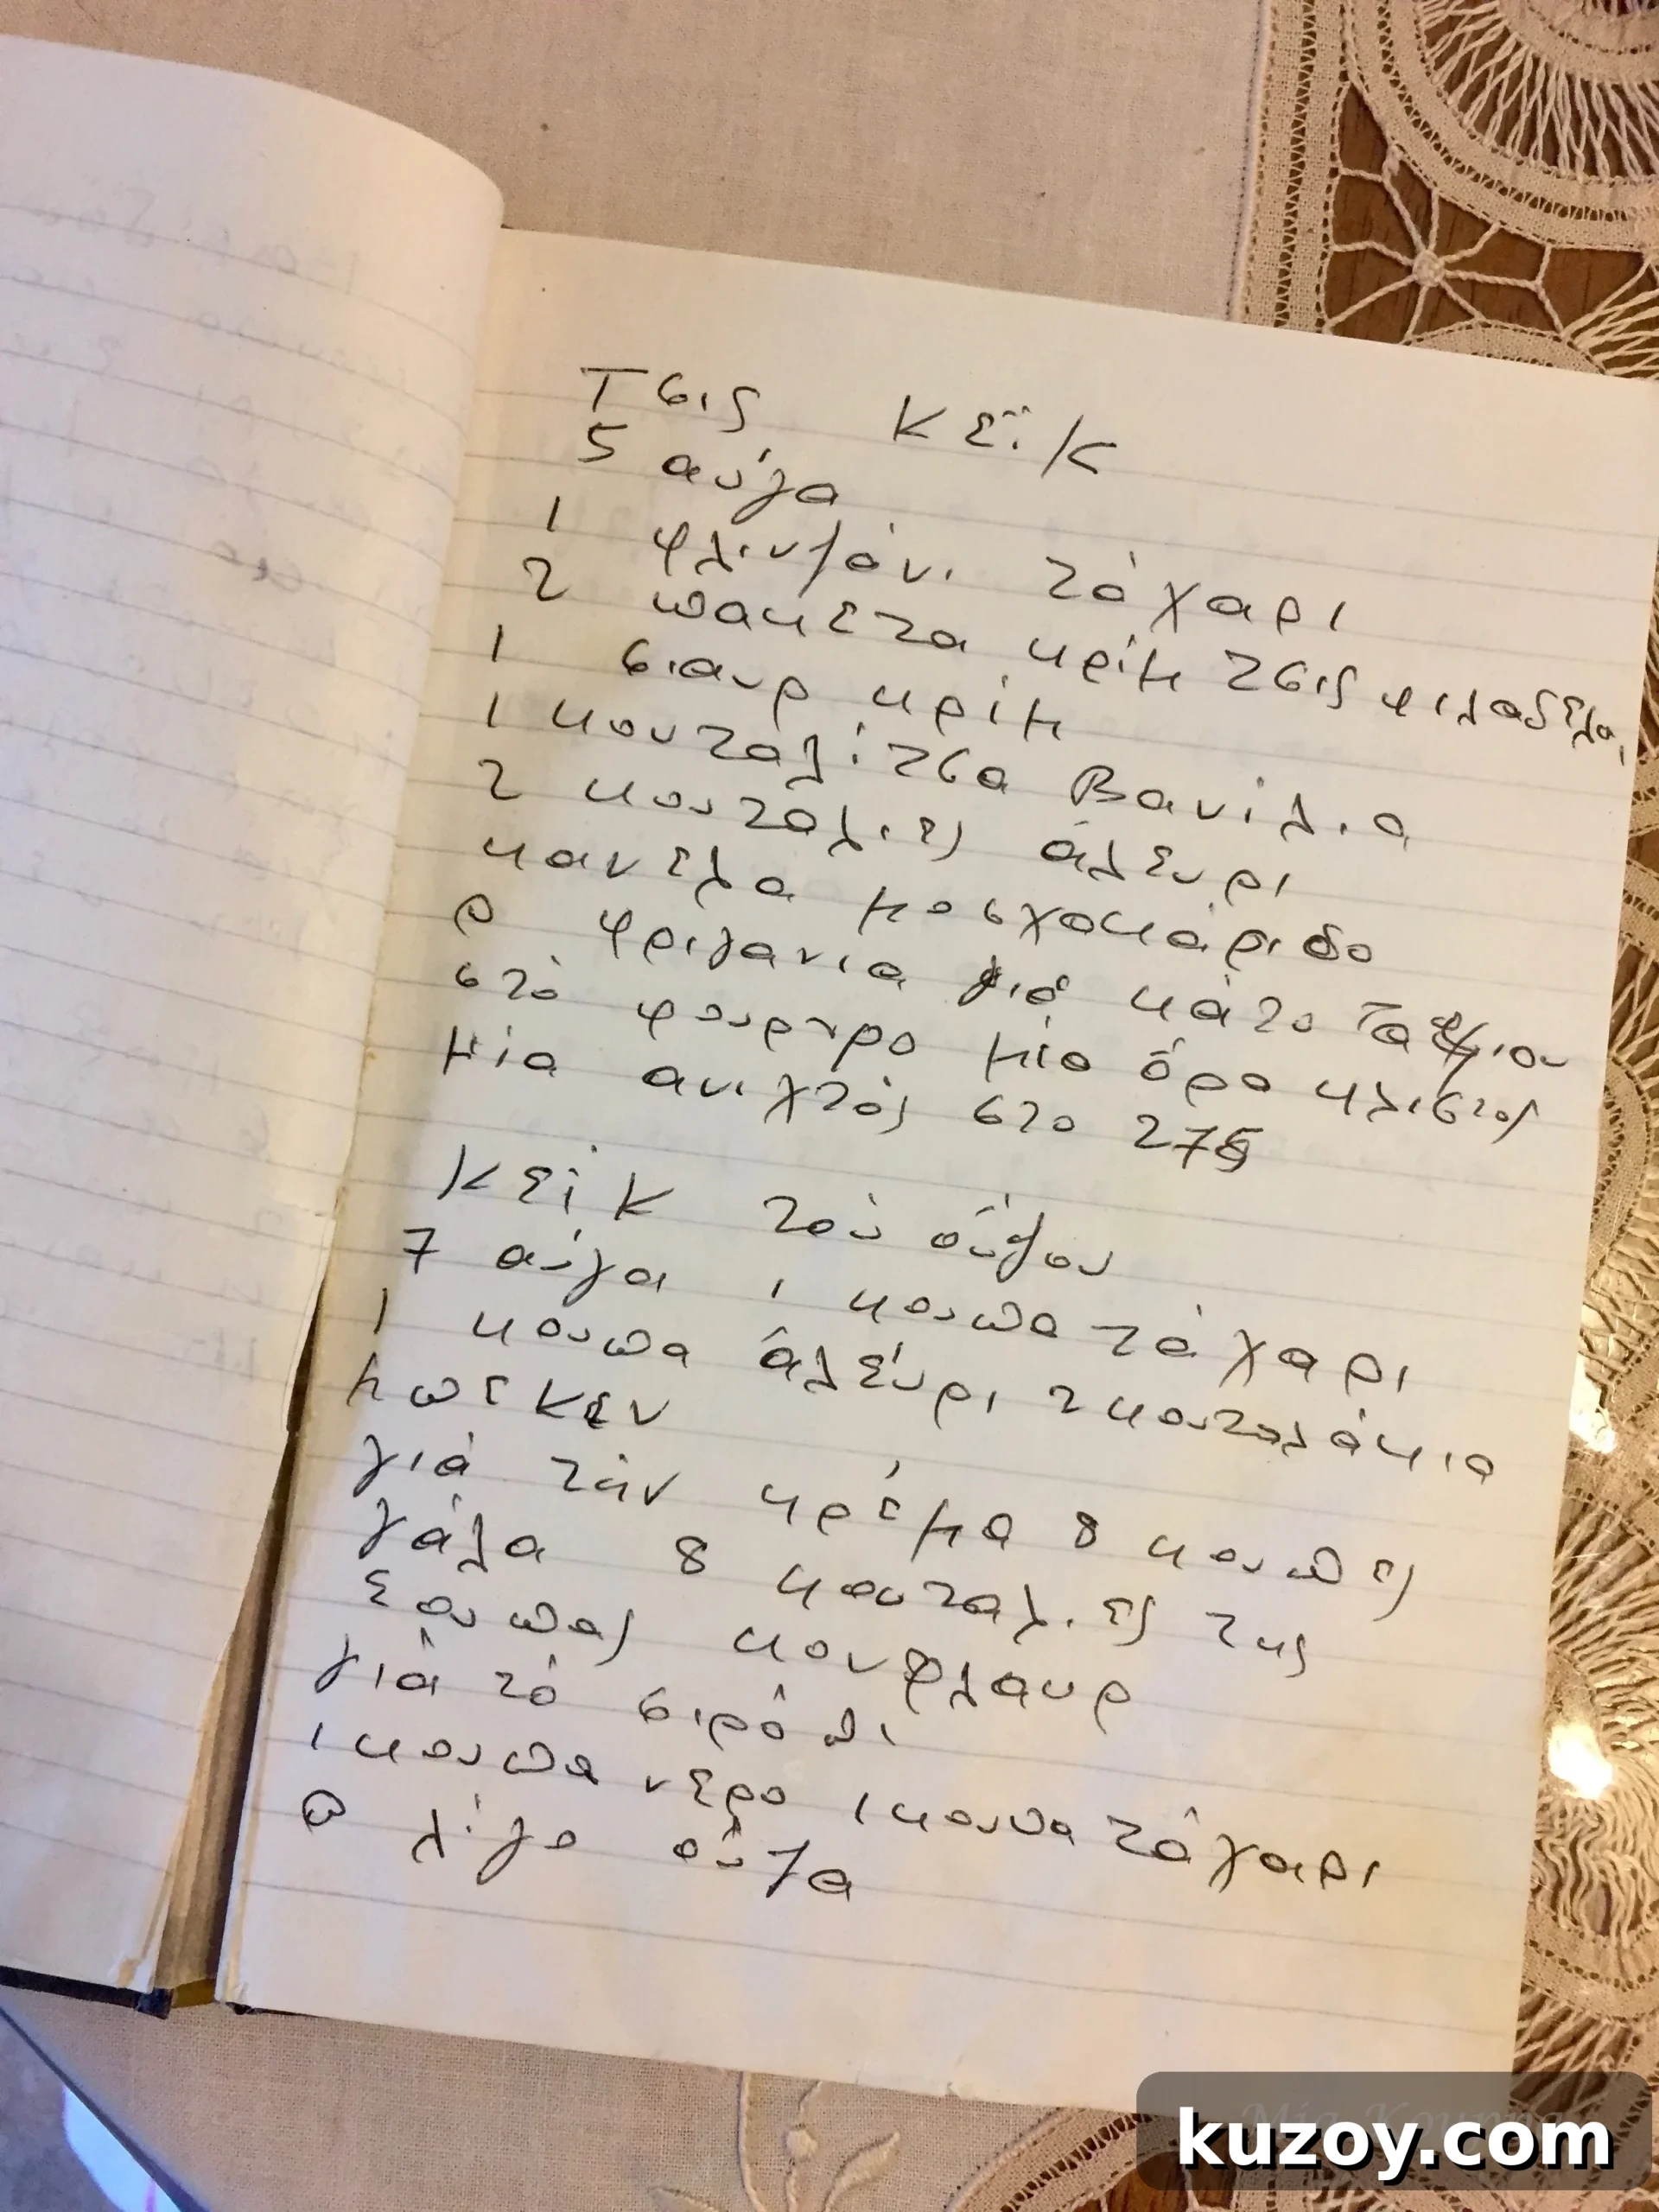 Τσις κέϊκ
5 αύγα
1 φλιντάνι ζάχαρι
2 πακετα κρίμ τσις φιλαδέλφια
1 σιαυρ κρίμ
1 κουταλίτσα Βανίλια
2 κουταλιές άλευρι
κανελα μοσχοκάριδο
φριγανια γιά κάτο
στό φουρνρο μία όρα κλιστός
μία ανιχτός στο 275
Κέικ τού
7 αύγα 1 κουπα ζάχαρι
1 κουπα άλεύρι 2 κουταλάκια
μπεκεν
γιά τήν κρέμα 8 κουπες
γάλα 8 κουταλιές της
σουπας κονφλαυρ
γιά τό σιρόπι
1 κουπα νερο 1 κουπα ζάχαρι
λίγο ούζα
kuzoy.com